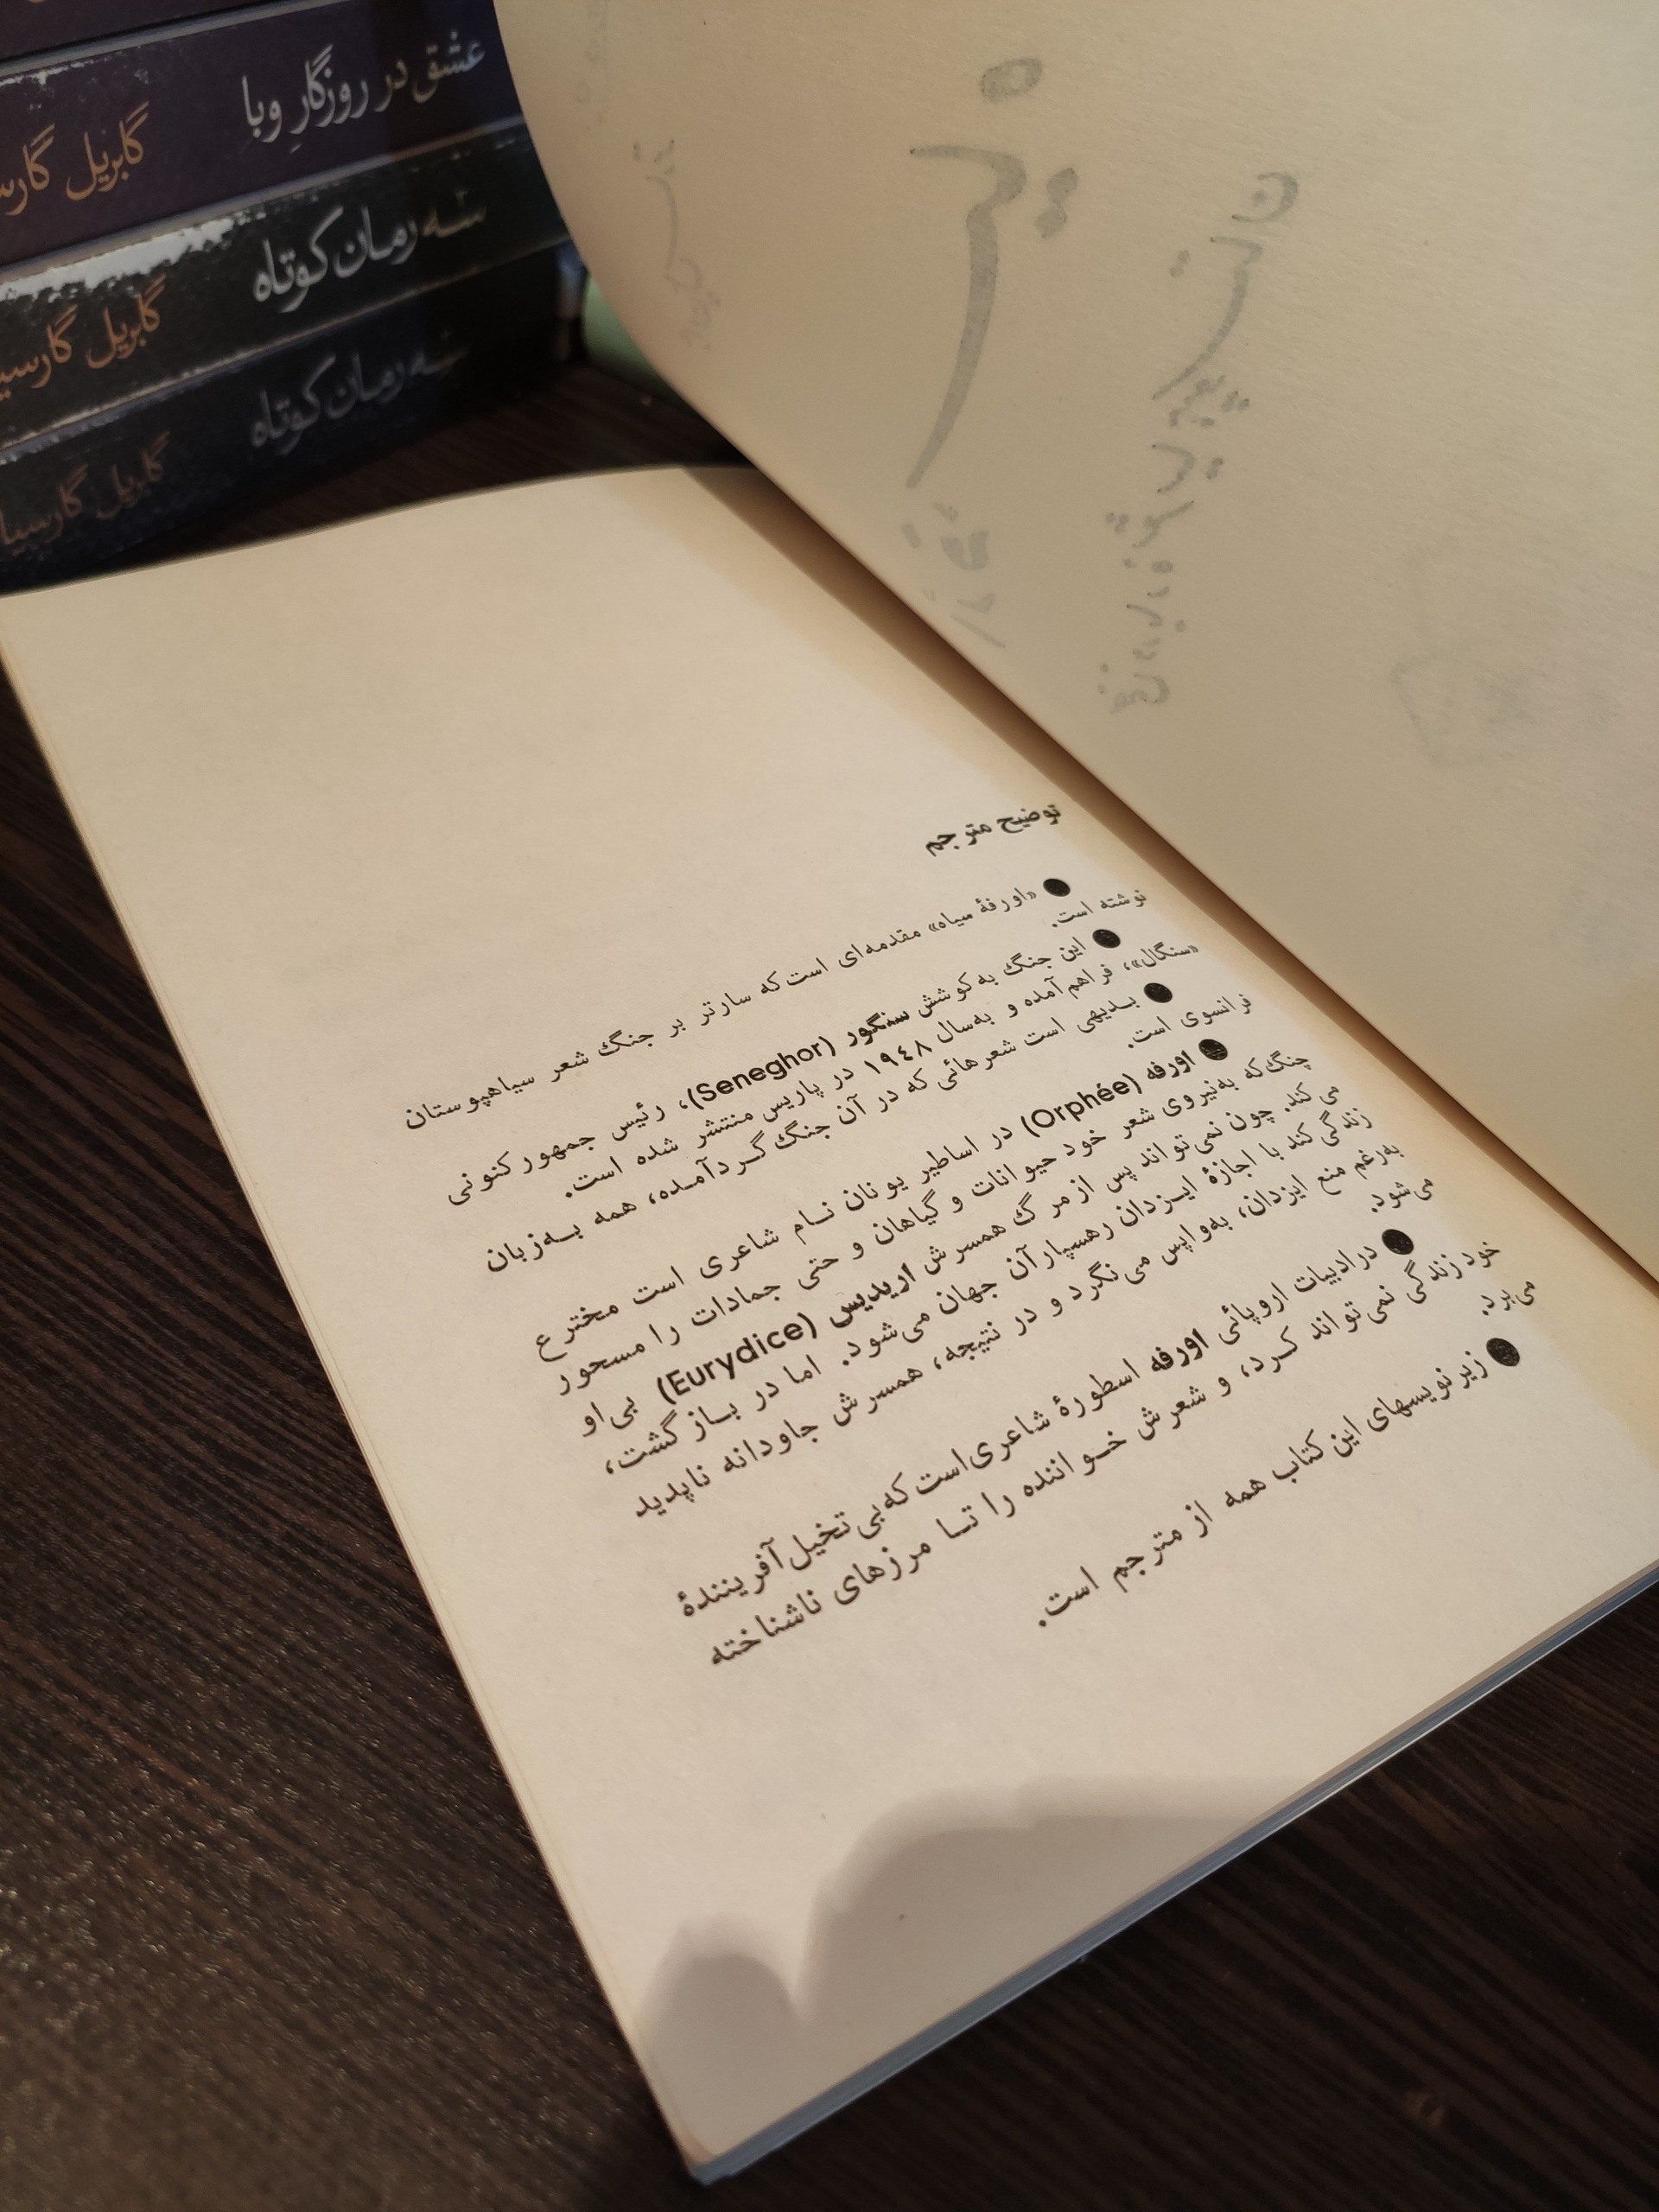 عشق در روزگارِ وبا
گابریل
سه رمان کوتاه
گابریل
سه رمان کوتاه
گابریل
توضیح مترجم
● «اورفهٔ سیاه» مقدمه‌ای است که سارتر بر جنگ شعر سیاهپوستان
نوشته است.
● این جنگ به کوشش سنگور (Seneghor)، رئیس جمهور کنونی
«سنگال»، فراهم آمده و به‌سال ۱۹٤۸ در پاریس منتشر شده است.
● بدیهی است شعرهائی که در آن جنگ گردآمده، همه به‌زبان
فرانسوی است.
● اورفه (Orphée) در اساطیر یونان نام شاعری است مخترع
چنگ که به‌نیروی شعر خود حیوانات و گیاهان و حتی جمادات را مسحور
می کند. چون نمی‌تواند پس از مرگ همسرش اریدیس (Eurydice) بی او
زندگی کند با اجازهٔ ایزدان رهسپار آن جهان می‌شود. اما در بازگشت،
به‌رغم منع ایزدان، به‌واپس می‌نگرد و در نتیجه، همسرش جاودانه ناپدید
می‌شود.
● در ادبیات اروپائی اورفه اسطورهٔ شاعری است که بی تخیل آفرینندهٔ
خود زندگی نمی‌تواند کرد، و شعرش خواننده را تا مرزهای ناشناخته
می‌برد.
● زیرنویسهای این کتاب همه از مترجم است.